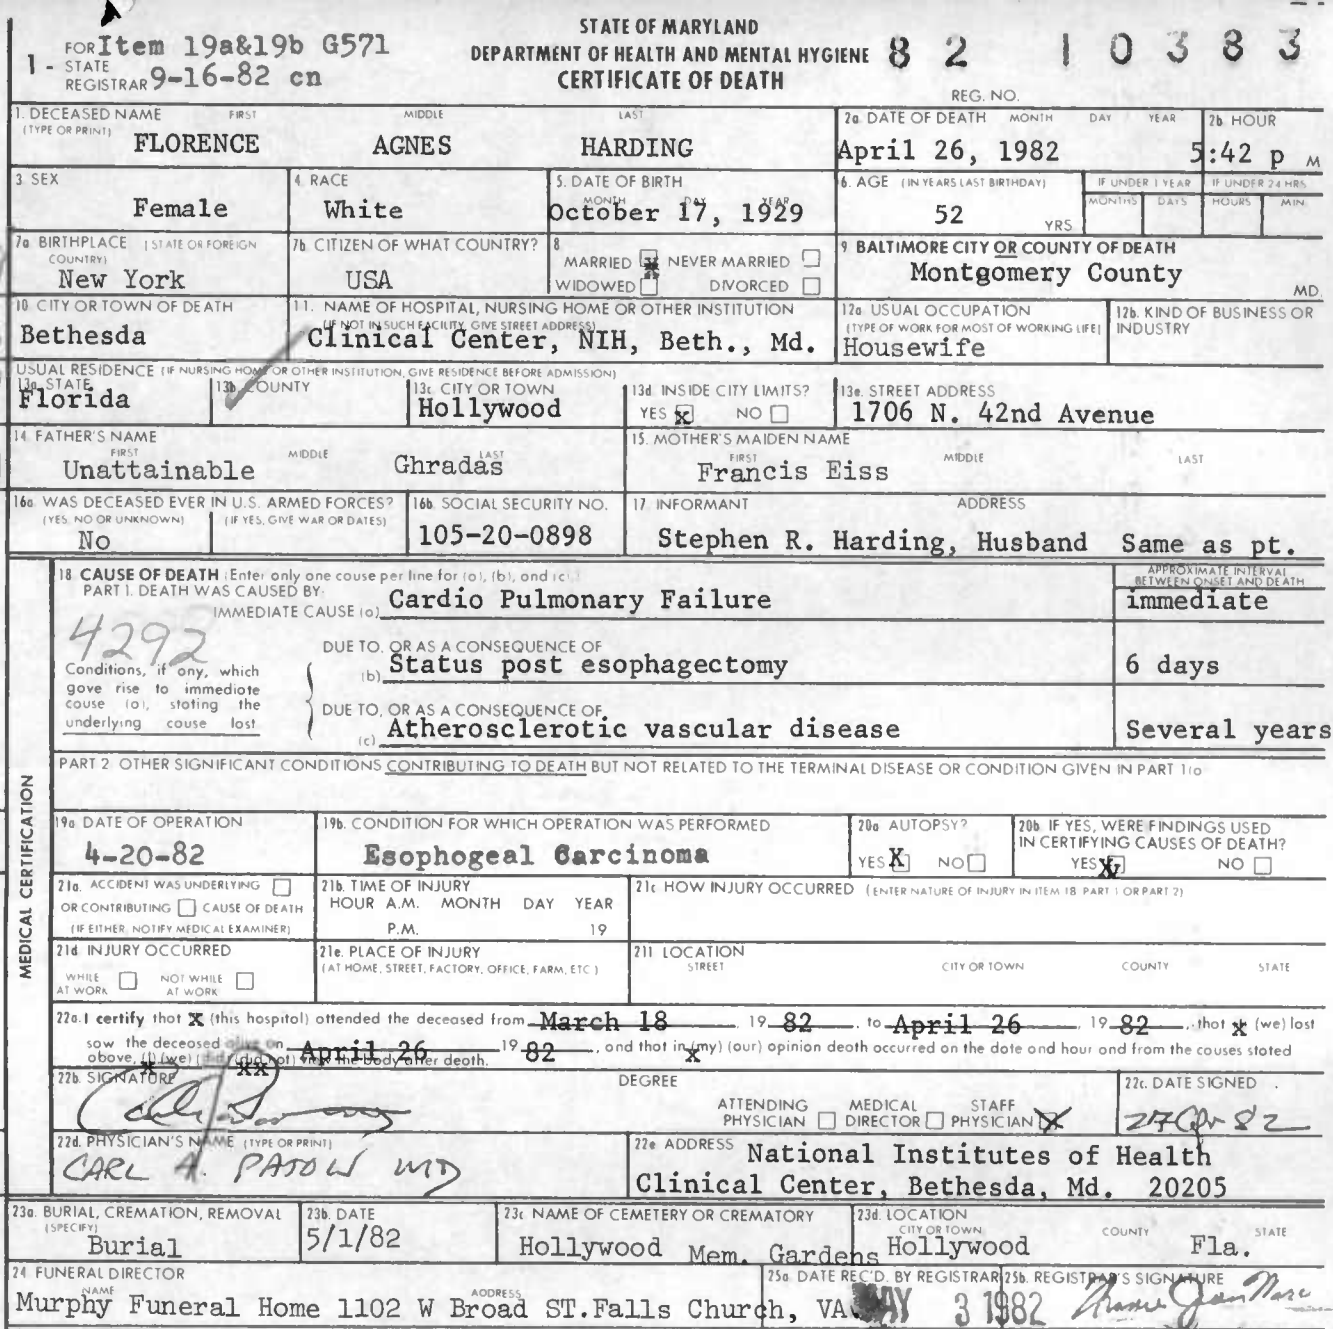 FOR Item 19a&19b G571
1 - STATE
REGISTRAR 9-16-82 cn
STATE OF MARYLAND
DEPARTMENT OF HEALTH AND MENTAL HYGIENE
CERTIFICATE OF DEATH
82 10383
REG. NO.
1. DECEASED NAME FIRST MIDDLE LAST
(TYPE OR PRINT)
FLORENCE AGNES HARDING
2a. DATE OF DEATH MONTH DAY YEAR
April 26, 1982
2b. HOUR
5:42 p M
3. SEX
Female
4. RACE
White
5. DATE OF BIRTH
MONTH DAY YEAR
October 17, 1929
6. AGE (IN YEARS LAST BIRTHDAY)
52 YRS
IF UNDER 1 YEAR
MONTHS DAYS
IF UNDER 24 HRS
HOURS MIN
7a. BIRTHPLACE (STATE OR FOREIGN
COUNTRY)
New York
7b. CITIZEN OF WHAT COUNTRY?
USA
8.
MARRIED X NEVER MARRIED
WIDOWED DIVORCED
9. BALTIMORE CITY OR COUNTY OF DEATH
Montgomery County
MD.
10. CITY OR TOWN OF DEATH
Bethesda
11. NAME OF HOSPITAL, NURSING HOME OR OTHER INSTITUTION
(IF NOT IN SUCH FACILITY, GIVE STREET ADDRESS)
Clinical Center, NIH, Beth., Md.
12a. USUAL OCCUPATION
(TYPE OF WORK FOR MOST OF WORKING LIFE)
Housewife
12b. KIND OF BUSINESS OR
INDUSTRY
USUAL RESIDENCE (IF NURSING HOME OR OTHER INSTITUTION, GIVE RESIDENCE BEFORE ADMISSION)
13a. STATE
Florida
13b. COUNTY
13c. CITY OR TOWN
Hollywood
13d. INSIDE CITY LIMITS?
YES X NO
13e. STREET ADDRESS
1706 N. 42nd Avenue
14. FATHER'S NAME
FIRST MIDDLE LAST
Unattainable Ghradas
15. MOTHER'S MAIDEN NAME
FIRST MIDDLE LAST
Francis Eiss
16a. WAS DECEASED EVER IN U.S. ARMED FORCES?
(YES, NO OR UNKNOWN) (IF YES, GIVE WAR OR DATES)
No
16b. SOCIAL SECURITY NO.
105-20-0898
17. INFORMANT ADDRESS
Stephen R. Harding, Husband Same as pt.
18. CAUSE OF DEATH (Enter only one cause per line for (a), (b), and (c)
PART 1. DEATH WAS CAUSED BY:
IMMEDIATE CAUSE (a) Cardio Pulmonary Failure
APPROXIMATE INTERVAL
BETWEEN ONSET AND DEATH
immediate
4292
Conditions, if any, which
gave rise to immediate
cause (a), stating the
underlying cause last
DUE TO, OR AS A CONSEQUENCE OF
(b) Status post esophagectomy
6 days
DUE TO, OR AS A CONSEQUENCE OF
(c) Atherosclerotic vascular disease
Several years
PART 2. OTHER SIGNIFICANT CONDITIONS CONTRIBUTING TO DEATH BUT NOT RELATED TO THE TERMINAL DISEASE OR CONDITION GIVEN IN PART 1(a
MEDICAL CERTIFICATION
19a. DATE OF OPERATION
4-20-82
19b. CONDITION FOR WHICH OPERATION WAS PERFORMED
Esophogeal Carcinoma
20a. AUTOPSY?
YES X NO
20b. IF YES, WERE FINDINGS USED
IN CERTIFYING CAUSES OF DEATH?
YES X NO
21a. ACCIDENT WAS UNDERLYING
OR CONTRIBUTING CAUSE OF DEATH
(IF EITHER, NOTIFY MEDICAL EXAMINER)
21b. TIME OF INJURY
HOUR A.M. MONTH DAY YEAR
P.M. 19
21c. HOW INJURY OCCURRED (ENTER NATURE OF INJURY IN ITEM 18 PART 1 OR PART 2)
21d. INJURY OCCURRED
WHILE AT WORK NOT WHILE AT WORK
21e. PLACE OF INJURY
(AT HOME, STREET, FACTORY, OFFICE, FARM, ETC.)
21f. LOCATION
STREET CITY OR TOWN COUNTY STATE
22a. I certify that X (this hospital) attended the deceased from March 18, 19 82, to April 26, 19 82, that X (we) last
saw the deceased alive on April 26 19 82, and that in (my) (our) opinion death occurred on the date and hour and from the causes stated
above, (I) (we) (did) (did not) view the body after death.
22b. SIGNATURE
DEGREE
ATTENDING PHYSICIAN MEDICAL DIRECTOR STAFF PHYSICIAN X
22c. DATE SIGNED
27 Apr 82
22d. PHYSICIAN'S NAME (TYPE OR PRINT)
CARL A. PATOW MD
22e. ADDRESS National Institutes of Health
Clinical Center, Bethesda, Md. 20205
23a. BURIAL, CREMATION, REMOVAL
(SPECIFY)
Burial
23b. DATE
5/1/82
23c. NAME OF CEMETERY OR CREMATORY
Hollywood Mem. Gardens
23d. LOCATION
CITY OR TOWN COUNTY STATE
Hollywood Fla.
24. FUNERAL DIRECTOR
NAME ADDRESS
Murphy Funeral Home 1102 W Broad ST.Falls Church, VA
25a. DATE REC'D. BY REGISTRAR
MAY 3 1982
25b. REGISTRAR'S SIGNATURE